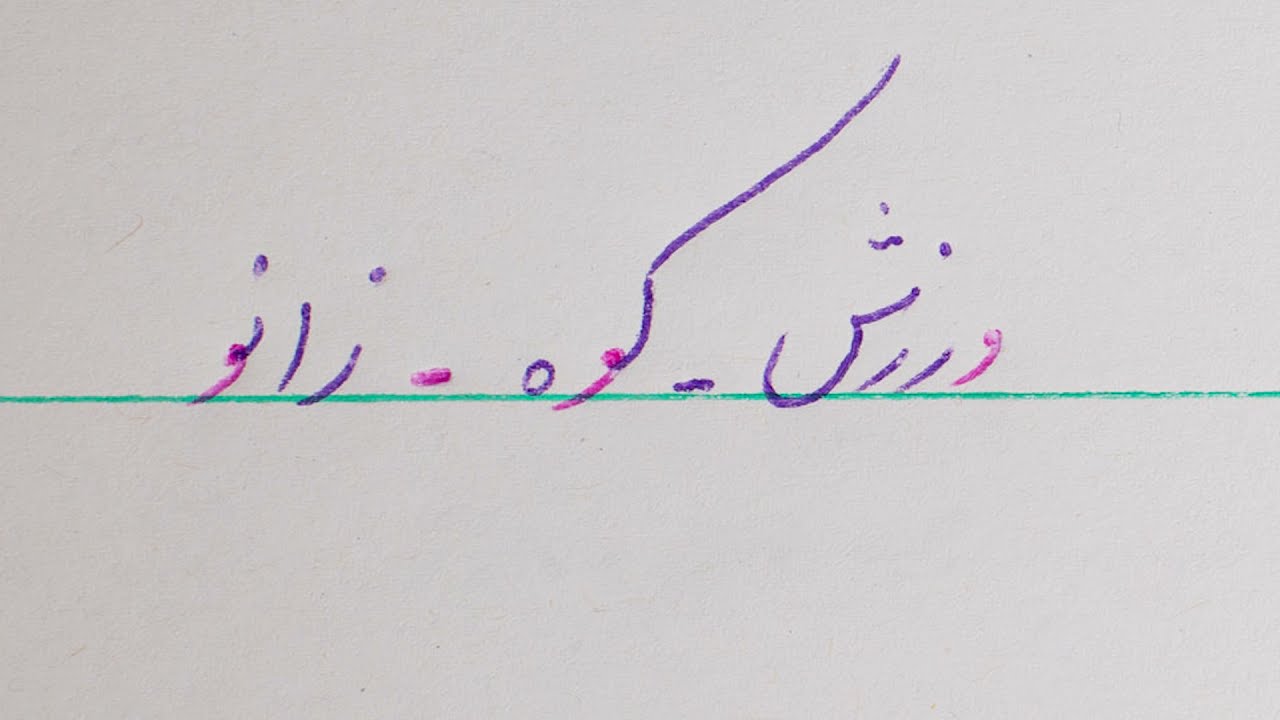 ورزش - کوه - زانو